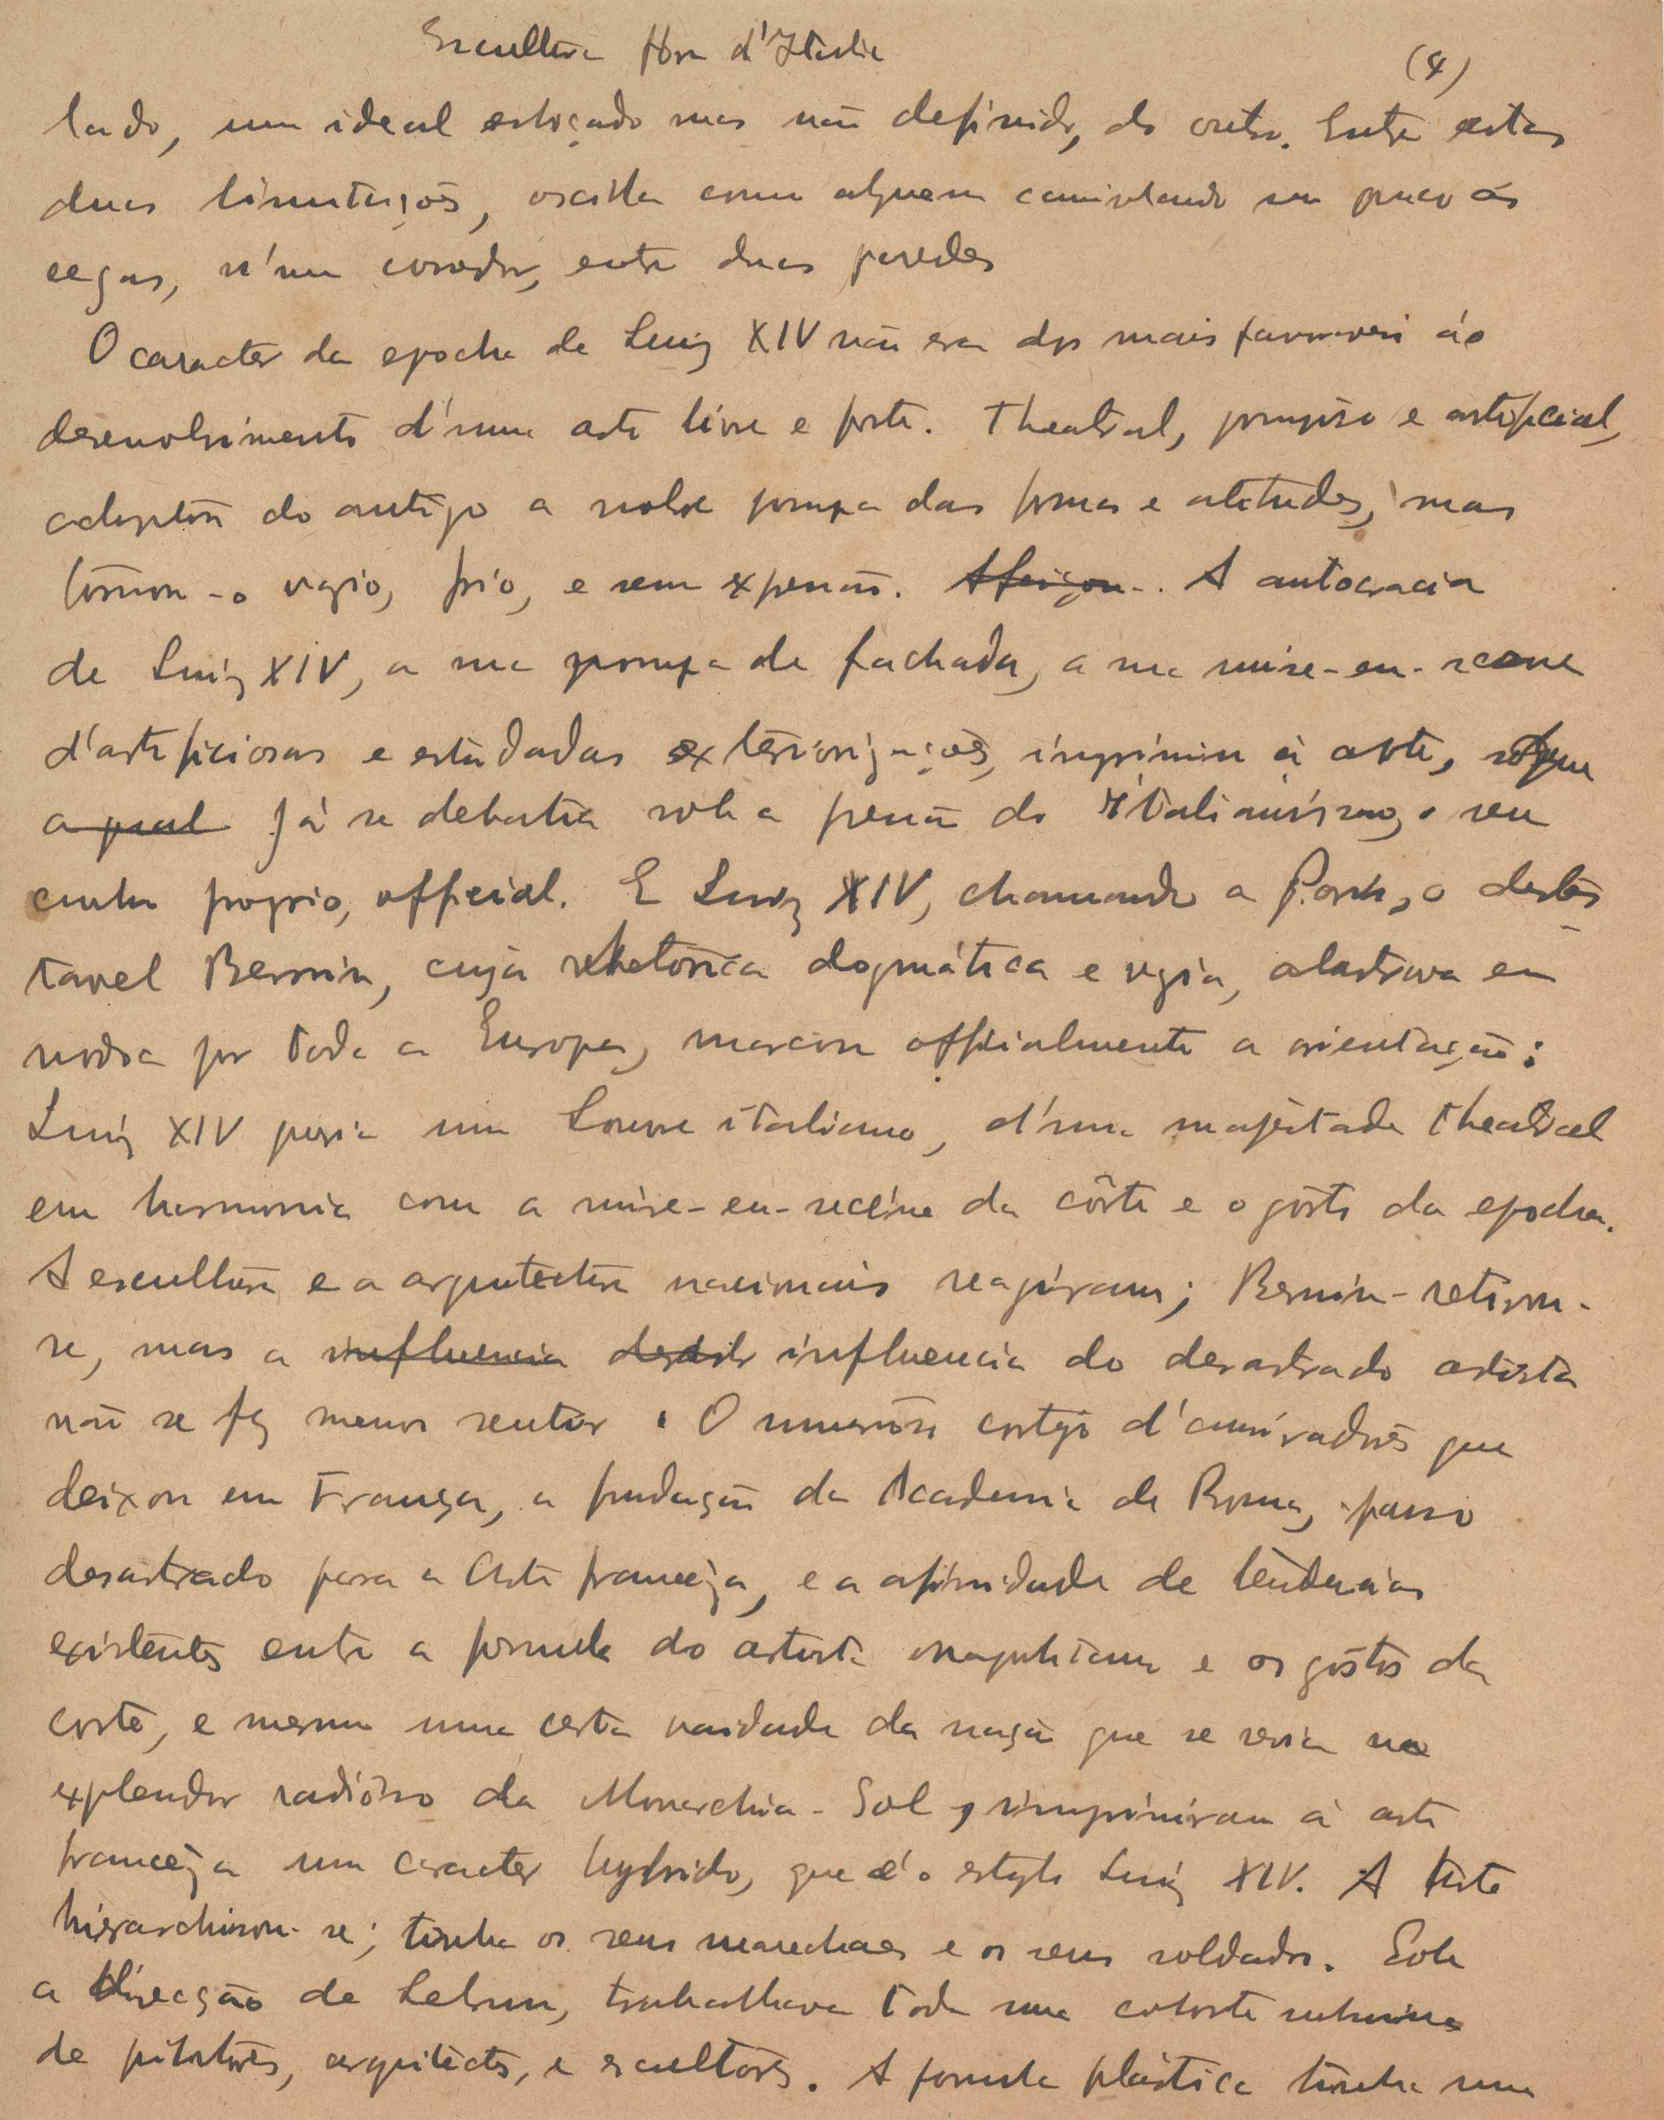 Escultura fora d'Italia
(4)
lado, um ideal esboçado mas não definido, do outro. Entre estas
duas limitações, oscilla como alguem caminhando um pouco ás
cegas, n'um corredor, entre duas paredes
O caracter da epocha de Luiz XIV não era dos mais favoraveis ao
desenvolvimento d'uma arte livre e forte. Theatral, pomposo e artificial,
adoptou do antigo a nobre pompa das formas e atitudes, mas
tornou-o rigido, frio, e sem expressão. Afeiçou.. A autocracia
de Luiz XIV, a sua pompa de fachada, a sua mise-en-scene
d'artificiosas e estudadas exteriorizações, imprimiu á arte, que
a qual já se debatia sob a pressão do Italianismo, o seu
cunho proprio, official. E Luiz XIV, chamando a Paris, o detes
tavel Bernin, cuja rhetorica dogmática e rigida, alastrava em
nodoa por toda a Europa, marcou officialmente a orientação:
Luiz XIV queria um Louvre italiano, d'uma majestade theatral
em harmonia com a mise-en-scène da côrte e o gôsto da epocha.
A escultura e a arquitectura nacionais reagiram; Bernin retirou-
se, mas a influencia deste influencia do desastrado artista
não se fez menos sentir. O numeroso cortejo d'admiradores que
deixou em França, a fundação da Academia de Roma, passo
desastrado para a Arte franceza, e a afinidade de tendencias
existentes entre a formula do artista napolitano e os gostos da
corte, e mesmo uma certa vaidade da nação que se revia no
explendor radioso da Monarchia-Sol, imprimiram á arte
franceza um caracter hybrido, que é o estylo Luiz XIV. A Arte
hierarchisou-se; tinha os seus marechaes e os seus soldados. Sob
a direcção de Lebrun, trabalhava toda uma cohorte submissa
de pintores, arquitectos, e escultores. A formula plástica tinha uma